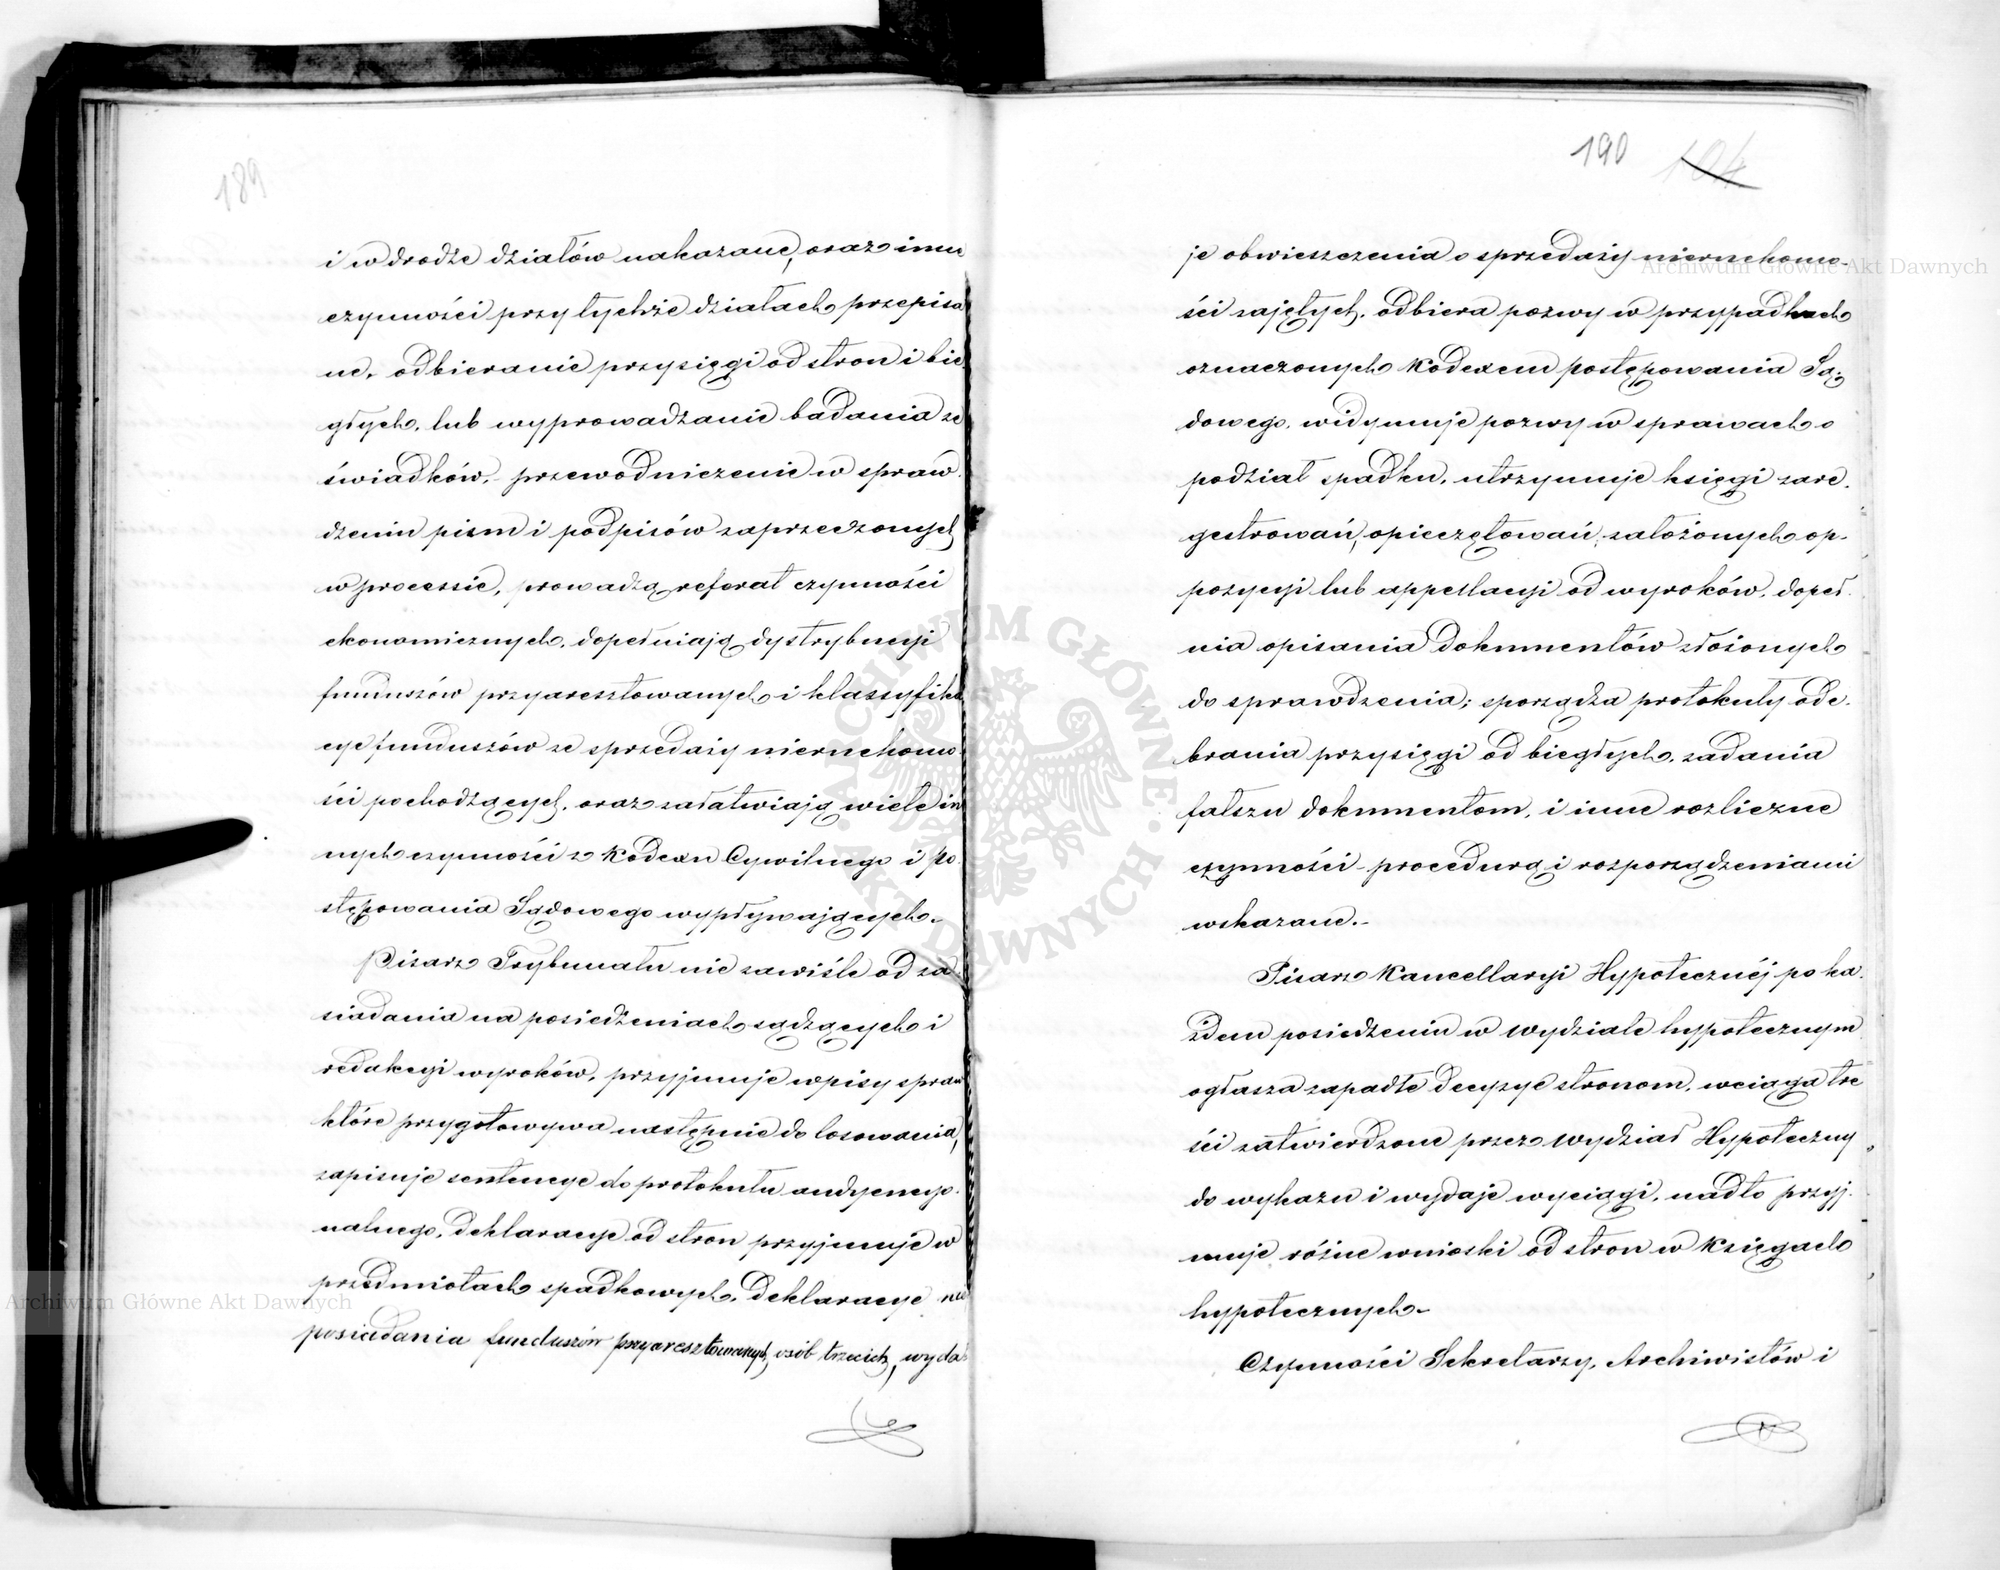 189
i w drodze działów nakazane, oraz inne
czynności przy tychże działach przepisa
ne, odbieranie przysięgi od stron i bie
głych, lub wyprowadzanie badania ze
świadków, przewodniczenie w spraw
dzeniu pism i podpisów zaprzeczonych
w processie, prowadzą referat czynności
ekonomicznych, dopełniają dystrybucyi
funduszów przyaresztowanych i klassyfika
cye funduszów ze sprzedaży nieruchomo
ści pochodzących, oraz załatwiają wiele in
nych czynności z Kodexu Cywilnego i Po
stępowania Sądowego wypływających.
Pisarz Trybunału nie zawiśle od za
siadania na posiedzeniach sądzących i
redakcyi wyroków, przyjmuje wpisy spraw
które przygotowywa następnie do losowania,
zapisuje sentencye do protokułu audyencyo
nalnego, deklaracye od stron przyjmuje w
przedmiotach spadkowych, deklaracye nie
posiadania funduszów przyaresztowanych osób trzecich, wyda
190 104
je obwieszczenia o sprzedaży nieruchomo-
ści zajętych, odbiera pozwy w przypadkach
oznaczonych Kodexem postępowania Są-
dowego, widymuje pozwy w sprawach o
podział spadku, utrzymuje księgi zare-
gestrowań, opieczętowań, założonych op-
pozycyi lub appellacyi od wyroków, dopeł-
nia opisania dokumentów złożonych
do sprawdzenia; sporządza protokuły ode-
brania przysięgi od biegłych, zadania
fałszu dokumentom, i inne rozliczne
czynności procedurą i rozporządzeniami
wskazane.-
Pisarz Kancellaryi Hypotecznéj po ka-
żdem posiedzeniu w Wydziale hypotecznym
ogłasza zapadłe decyzye stronom, wciąga tre
ści zatwierdzone przez Wydział Hypoteczny
do wykazu i wydaje wyciągi, nadto przyj-
muje różne wnioski od stron w Księgach
hypotecznych.
Czynności Sekretarzy, Archiwistów i
Archiwum Główne Akt Dawnych
Archiwum Główne Akt Dawnych
ARCHIWUM GŁÓWNE AKT DAWNYCH